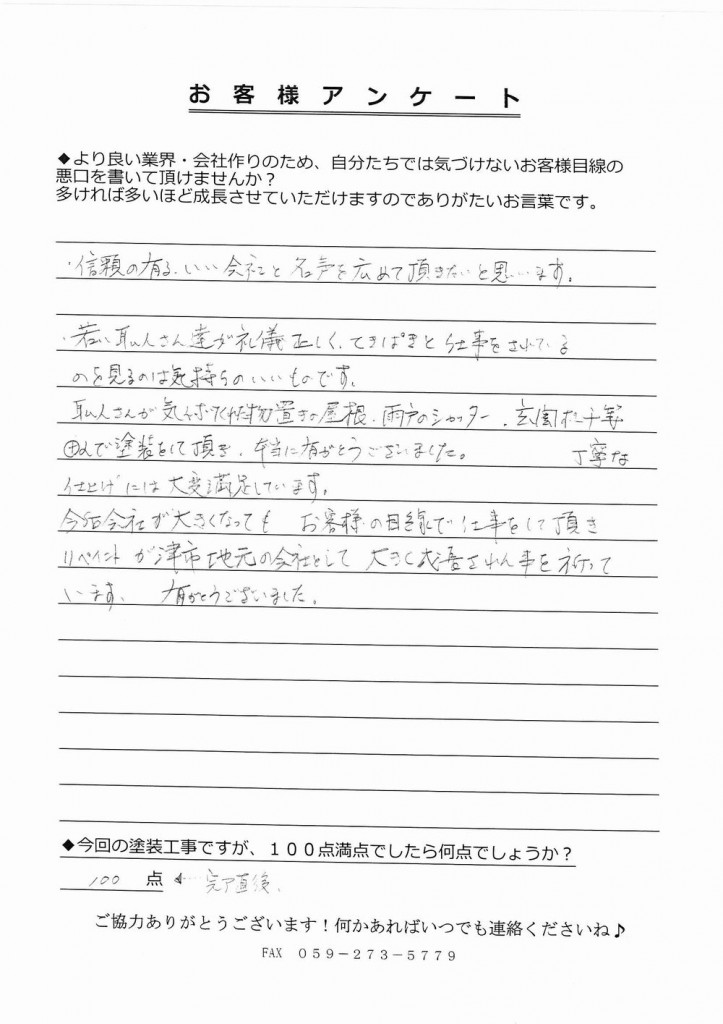 お客様アンケート
◆より良い業界・会社作りのため、自分たちでは気づけないお客様目線の
悪口を書いて頂けませんか？
多ければ多いほど成長させていただけますのでありがたいお言葉です。
・信頼の有る、いい会社と名声を広めて頂きたいと思います。
・若い職人さん達が礼儀正しく、てきぱきと仕事をされている
のを見るのは気持ちのいいものです。
職人さんが気付いてくれた物置きの屋根、雨戸のシャッター、玄関
で塗装をして頂き、本当に有がとうございました。 丁寧な
仕上げには大変満足しています。
今后会社が大きくなっても お客様の目線で仕事をして頂き
リペイントが津市地元の会社として大きく成長されん事を祈って
います。 有がとうございました。
◆今回の塗装工事ですが、１００点満点でしたら何点でしょうか？
100 点 ← 完了直後、
ご協力ありがとうございます！何かあればいつでも連絡くださいね♪
FAX ０５９－２７３－５７７９